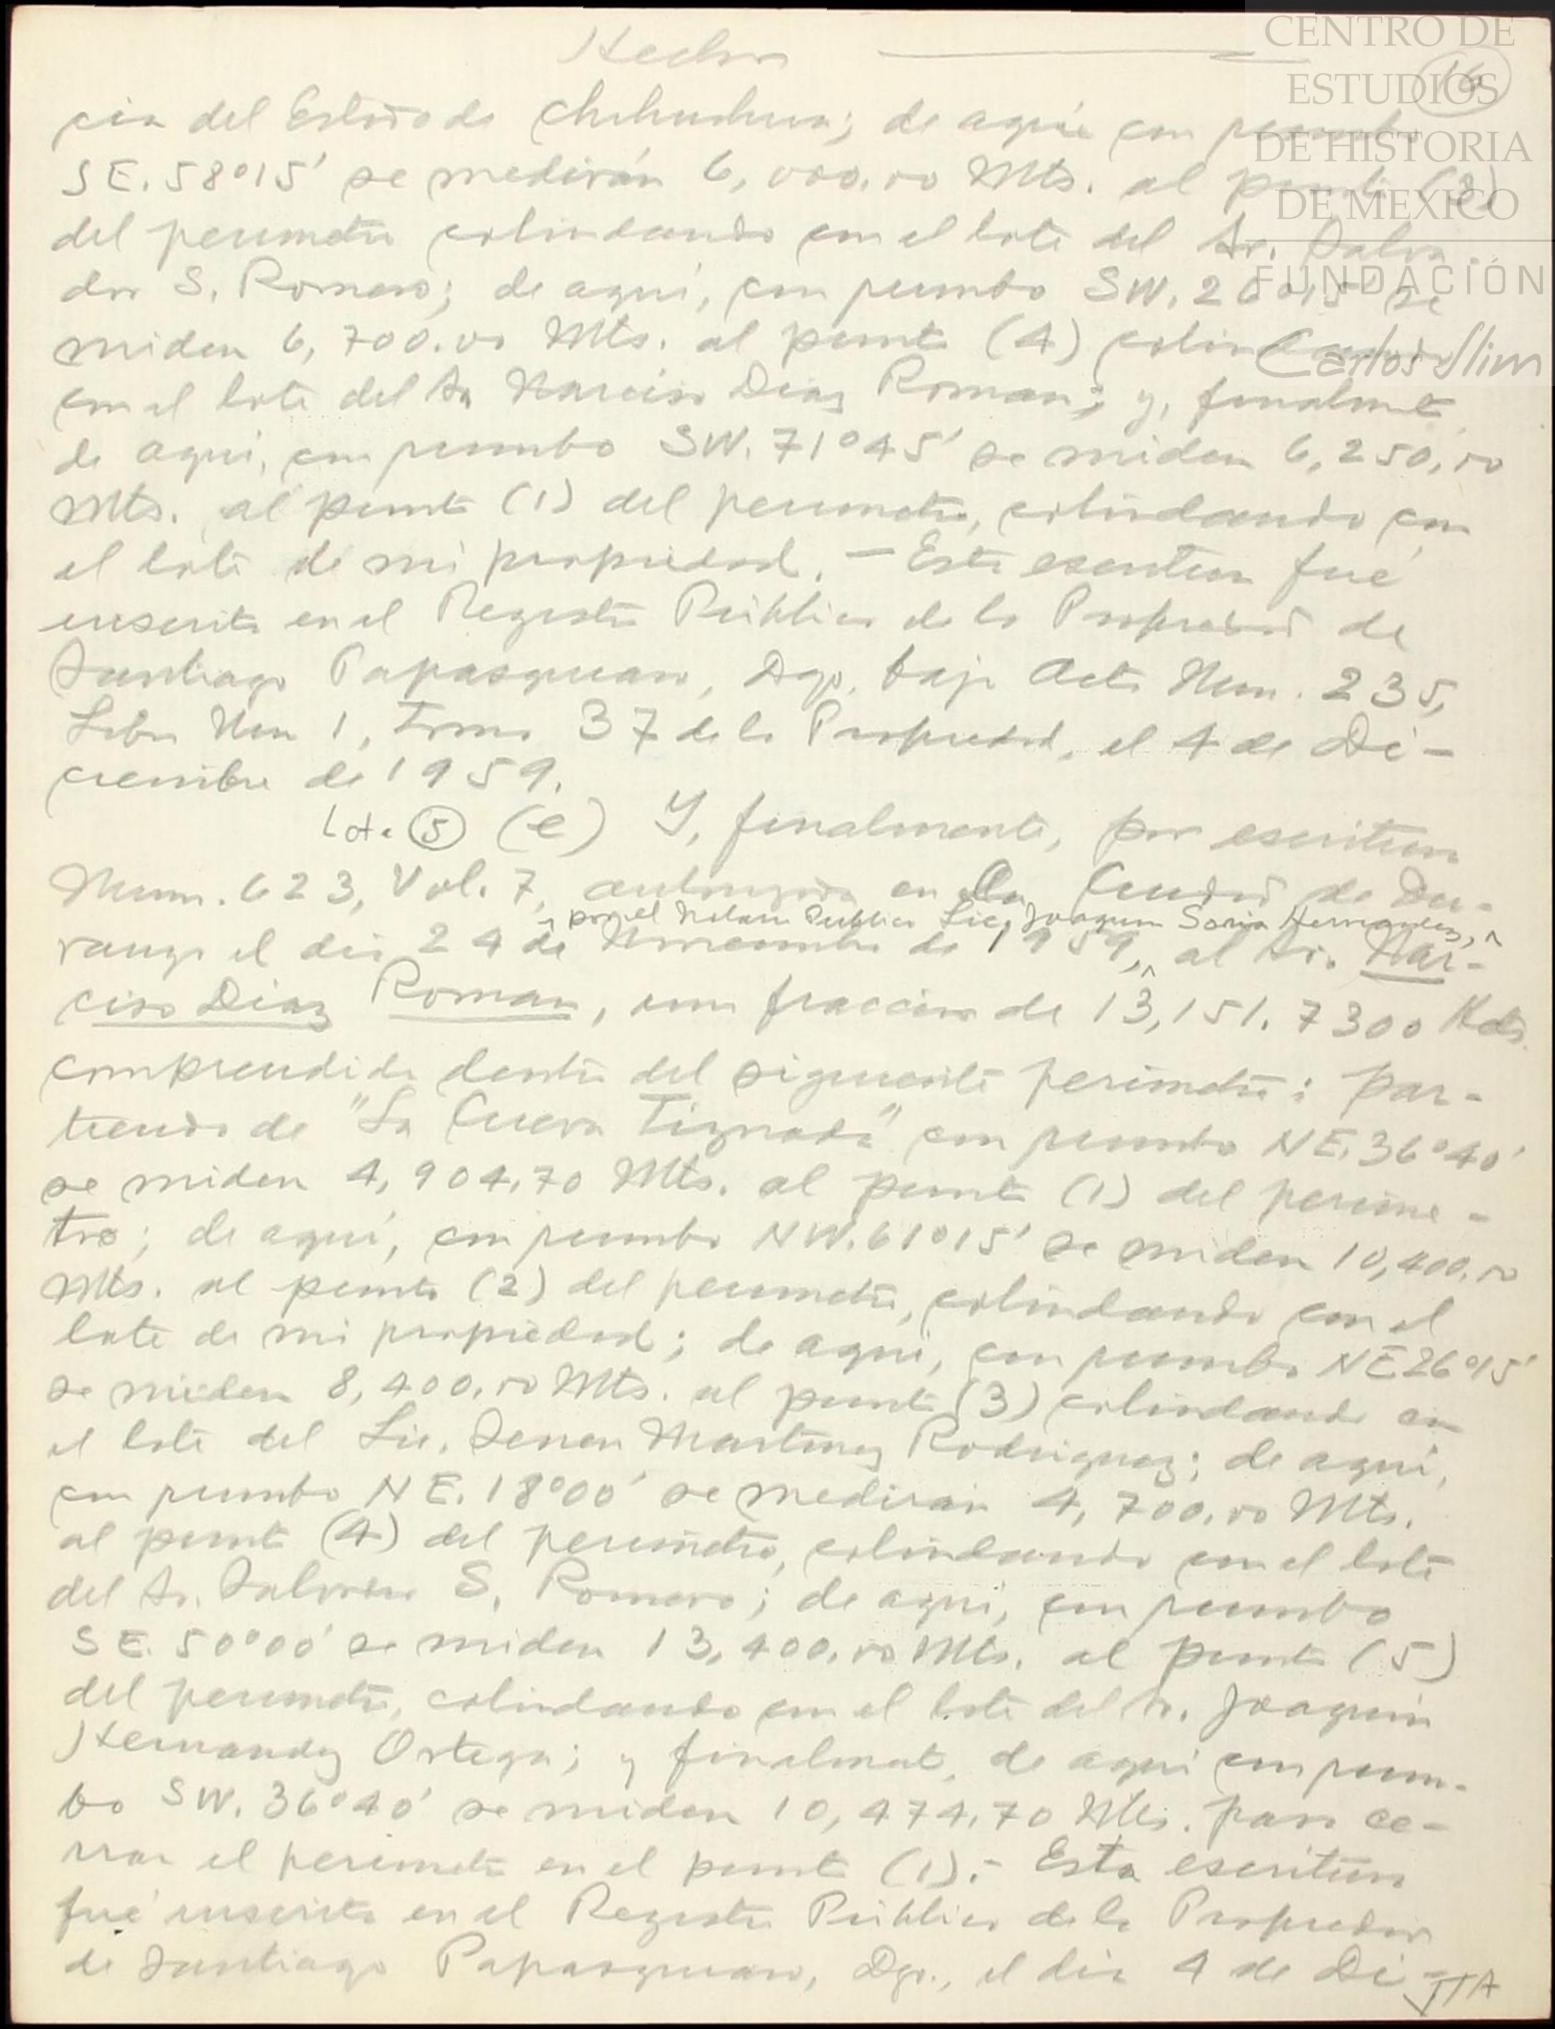 Hecho
16
CENTRO DE
ESTUDIOS
DE HISTORIA
DE MEXICO
FUNDACIÓN
Carlos Slim
cia del Estado de Chihuahua; de aquí con rumbo
SE. 58°15' se medirán 6,000.00 Mts. al punto (3)
del perimetro colindando con el lote del Sr. Salva-
dor S. Romero; de aquí, con rumbo SW. 26°15' se
miden 6,700.00 Mts. al punto (4) colindando
con el lote del Sr Narciso Diaz Roman; y, finalmente
de aqui, con rumbo SW. 71°45' se miden 6,250.00
Mts. al punto (1) del perimetro, colindando con
el lote de mi propiedad. — Esta escritura fué
inscrita en el Registro Público de la Propiedad de
Santiago Papasquiaro, Dgo. bajo Acta Num. 235,
Libro Num 1, Tomo 37 de la Propiedad, el 4 de Di-
ciembre de 1959.
Lote (5) (e) Y, finalmente, por escritura
Num. 623, Vol. 7, autorizada en la Ciudad de Du-
por el Notario Publico Lic. Joaquin Soria Hernandez,
rango el dia 24 de Noviembre de 1959, al Sr. Nar-
ciso Diaz Roman, una fraccion de 13,151.7300 Hets.
comprendida dentro del siguiente perimetro: Par-
tiendo de "La Cueva Tiznada" con rumbo NE. 36°40'
se miden 4,904.70 Mts. al punto (1) del perime-
tro; de aquí, con rumbo NW. 61°15' se miden 10,400.00
Mts. al punto (2) del perimetro, colindando con el
lote de mi propiedad; de aqui, con rumbo NE 26°15'
se miden 8,400.00 Mts. al punto (3) colindando con
el lote del Lic. Martinez Rodriguez; de aqui,
con rumbo NE. 18°00' se mediran 4,700.00 Mts.
al punto (4) del perimetro, colindando con el lote
del Sr. Salvador S. Romero; de aqui, con rumbo
SE. 50°00' se miden 13,400.00 Mts. al punto (5)
del perimetro, colindando con el lote del Sr. Joaquin
Hernandez Ortega; y finalmente, de aqui con rum-
bo SW. 36°40' se miden 10,474.70 Mts. para ce-
rrar el perimetro en el punto (1).- Esta escritura
fué inscrita en el Registro Público de la Propiedad
de Santiago Papasquiaro, Dgo., el dia 4 de Di-
JTA